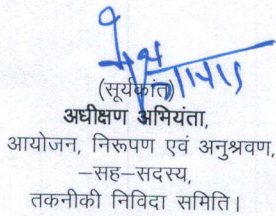 (सूर्यकांत)
अधीक्षण अभियंता,
आयोजन, निरूपण एवं अनुश्रवण,
–सह–सदस्य,
तकनीकी निविदा समिति।